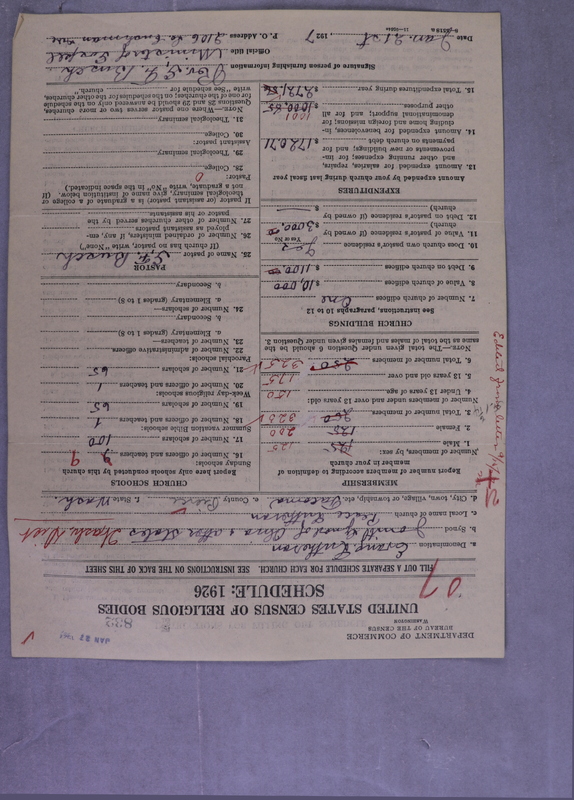 DEPARTMENT OF COMMERCE
BUREAU OF THE CENSUS
WASHINGTON
832
JAN 22
UNITED STATES CENSUS OF RELIGIOUS BODIES
SCHEDULE: 1926
FILL OUT A SEPARATE SCHEDULE FOR EACH CHURCH. SEE INSTRUCTIONS ON THE BACK OF THIS SHEET
a. Denomination Evang. Lutheran
b. Synod Joint Synod of Ohio & other states Wash. Dist
c. Local name of church Peace Lutheran
d. City, town, village, or township, etc. Tacoma e. County Pierce f. State Wash.
MEMBERSHIP
Report number of members according to definition of member in your church
Number of members, by sex:
1. Male 125 125
2. Female 125 200
3. Total number of members 250 325
Number of members under and over 13 years old:
4. Under 13 years of age 150
5. 13 years old and over 175
6. Total number of members 250 325
NOTE—The total given under Question 6 should be the same as the total of males and females given under Question 3.
CHURCH BUILDINGS
See instructions, paragraphs 10 to 12
7. Number of church edifices One
8. Value of church edifices $ 10,000
9. Debt on church edifices $ 1100.00
10. Does church own pastor's residence Yes
Yes or No
11. Value of pastor's residence (if owned by church) $ 3000.00
12. Debt on pastor's residence (if owned by church) $
EXPENDITURES
Amount expended by your church during last fiscal year
13. Amount expended for salaries, repairs, and other running expenses; for improvements or new buildings; and for payments on church debt $ 1780.71
14. Amount expended for benevolences, including home and foreign missions; for denominational support; and for all other purposes $ 1000.65 1001
15. Total expenditures during year $ 2781.36
CHURCH SCHOOLS
Report here only schools conducted by this church
Sunday schools:
16. Number of officers and teachers 9 9
17. Number of scholars 100
Summer vacation Bible schools:
18. Number of officers and teachers 1
19. Number of scholars 65
Week-day religious schools:
20. Number of officers and teachers 1
21. Number of scholars 65
Parochial schools:
22. Number of administrative officers
23. Number of teachers—
a. Elementary (grades 1 to 8)
b. Secondary
24. Number of scholars—
a. Elementary (grades 1 to 8)
b. Secondary
PASTOR
25. Name of pastor E. F. Busch
(If church has no pastor, write "None")
26. Number of ordained ministers, if any, employed as assistant pastors
27. Number of other churches served by the pastor or his assistants
If pastor (or assistant pastor) is a graduate of a college or theological seminary, give name of institution below. (If not a graduate, write "No" in the space indicated.)
Pastor:
28. College 0
29. Theological seminary
Assistant pastor:
30. College
31. Theological seminary
NOTE.—Where one pastor serves two or more churches, Questions 28 and 29 should be answered only on the schedule for one of the churches; on the schedules for the other churches, write "See schedule for church."
Signature of person furnishing information Rev. E. F. Busch
Official title Minister of Gospel
P. O. Address 2106 So. Cushman Ave
Date Jan. 21st, 1927